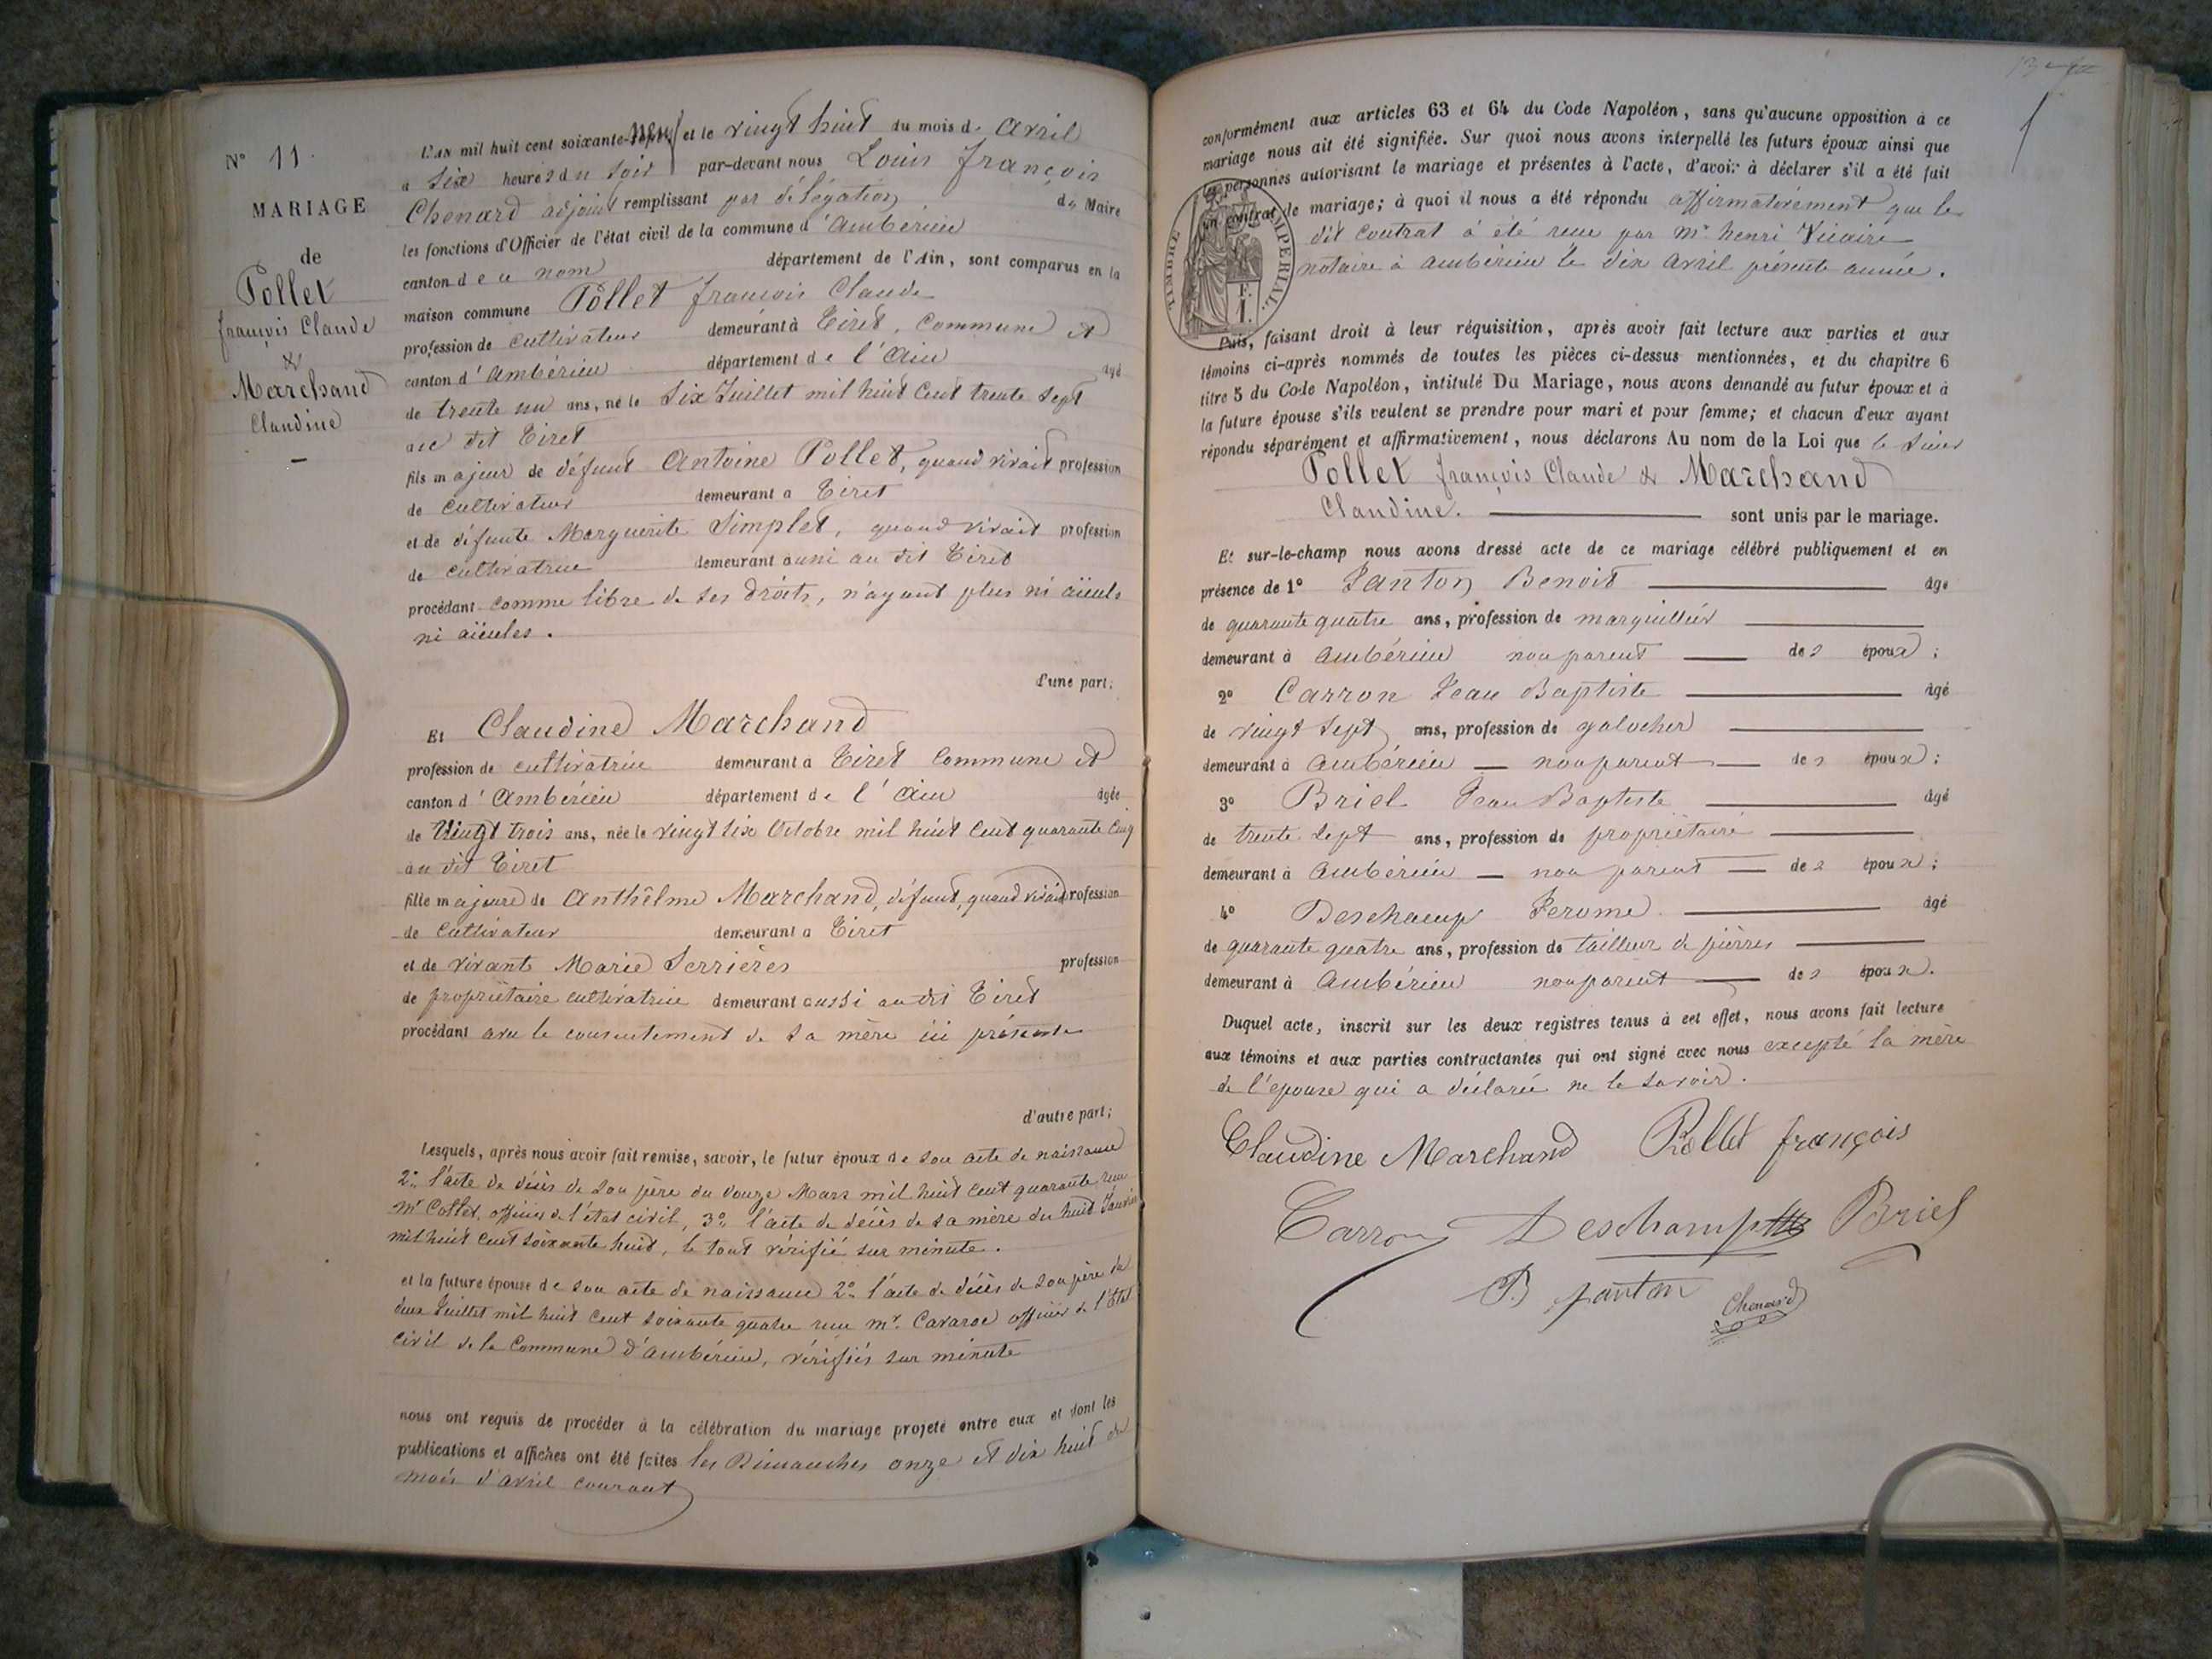 N° 11
MARIAGE
de
Pollet
françois Claude
&
Marchand
Claudine
L'AN mil huit cent soixante-neuf et le vingt huit du mois d' avril
a six heures du soir par-devant nous Louis françois
Chenard adjoint remplissant par délégation du Maire
les fonctions d'Officier de l'état civil de la commune d'ambérieu
canton de ce nom département de l'Ain, sont comparus en la
maison commune Pollet françois Claude
profession de cultivateur demeurant à Tiret, commune et
canton d'ambérieu département de l'ain âgé
de trente un ans, né le six Juillet mil huit cent trente sept
au dit Tiret
fils majeur de défunt Antoine Pollet, quand vivait profession
de cultivateur demeurant a Tiret
et de défunte Marguerite Simplet, quand vivait profession
de cultivatrice demeurant aussi au dit Tiret
procédant comme libre de ses droits, n'ayant plus ni aïeuls
ni aïeules.
d'une part;
Et Claudine Marchand
profession de cultivatrice demeurant a Tiret commune et
canton d'Ambérieu département de l'ain âgée
de vingt trois ans, née le vingt six Octobre mil huit cent quarante cinq
au dit Tiret
fille majeure de Anthêlme Marchand, défunt, quand vivait profession
de cultivateur demeurant a Tiret
et de vivante Marie Serrières profession
de propriétaire cultivatrice demeurant aussi au dit Tiret
procédant avec le consentement de sa mère ici présente
d'autre part;
Lesquels, après nous avoir fait remise, savoir, le futur époux de son acte de naissance
2° l'acte de décès de son père du douze Mars mil huit cent quarante, reçu
Mr Collet, officier de l'état civil, 3° l'acte de décès de sa mère du huit Janvier
mil huit cent soixante huit, le tout vérifié sur minute.
et la future épouse de son acte de naissance 2° l'acte de décès de son père du
deux Juillet mil huit cent soixante quatre reçu mr. Cavarod officier de l'Etat
civil de la Commune d'ambérieu, vérifiés sur minute
nous ont requis de procéder à la célébration du mariage projeté entre eux et dont les
publications et affiches ont été faites les Dimanches onze et dix huit du
mois d'avril courant
conformément aux articles 63 et 64 du Code Napoléon, sans qu'aucune opposition à ce
mariage nous ait été signifiée. Sur quoi nous avons interpellé les futurs époux ainsi que
les personnes autorisant le mariage et présentes à l'acte, d'avoir à déclarer s'il a été fait
un contrat de mariage; à quoi il nous a été répondu affirmativement que le
dit contrat a été reçu par mr henri Vicaire
notaire à ambérieu le dix avril présente année.
TIMBRE IMPÉRIAL
Puis, faisant droit à leur réquisition, après avoir fait lecture aux parties et aux
témoins ci-après nommés de toutes les pièces ci-dessus mentionnées, et du chapitre 6
titre 5 du Code Napoléon, intitulé Du Mariage, nous avons demandé au futur époux et à
la future épouse s'ils veulent se prendre pour mari et pour femme; et chacun d'eux ayant
répondu séparément et affirmativement, nous déclarons Au nom de la Loi que le sieur
Pollet françois Claude & Marchand
Claudine. sont unis par le mariage.
Et sur-le-champ nous avons dressé acte de ce mariage célébré publiquement et en
présence de 1° Janton Benoit âgé
de quarante quatre ans, profession de marguillier
demeurant à ambérieu non parent des époux;
2° Carron Jean Baptiste âgé
de vingt sept ans, profession de galocher
demeurant à ambérieu non parent des époux;
3° Briel Jean Baptiste âgé
de trente sept ans, profession de propriétaire
demeurant à ambérieu non parent des époux;
4° Deschamp Jerome âgé
de quarante quatre ans, profession de tailleur de pierres
demeurant à ambérieu non parent des époux.
Duquel acte, inscrit sur les deux registres tenus à cet effet, nous avons fait lecture
aux témoins et aux parties contractantes qui ont signé avec nous excepté la mère
de l'épouse qui a déclaré ne le savoir.
Claudine Marchand Pollet françois
Carron Deschamp Briel
B janton Chenard